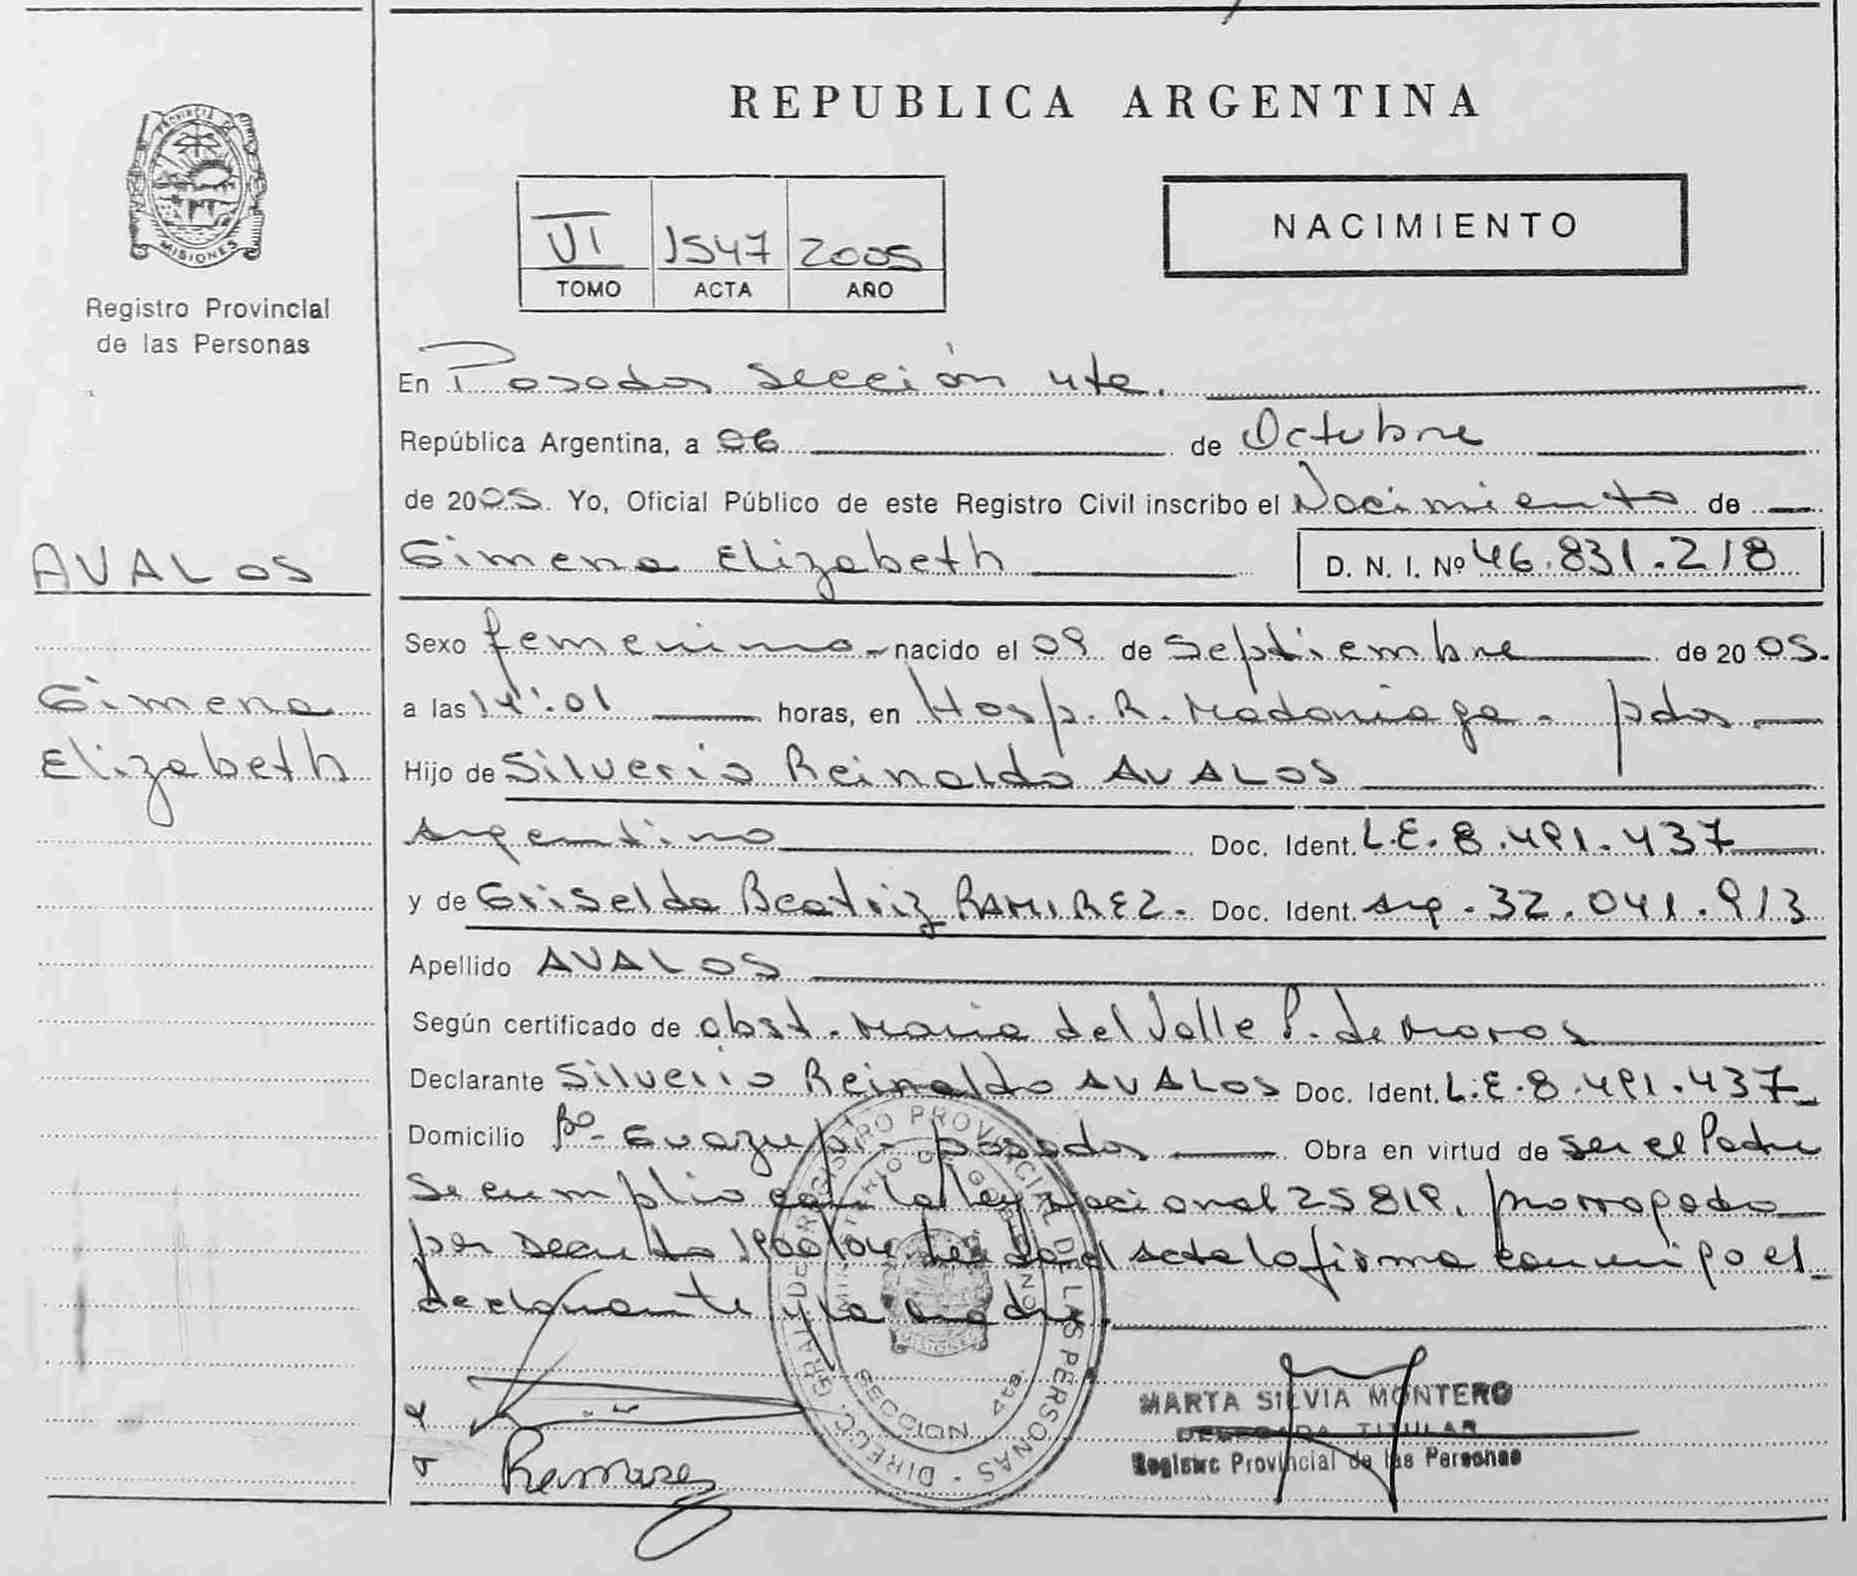 REPUBLICA ARGENTINA
PROVINCIA DE MISIONES
Registro Provincial
de las Personas
VI 1547 2005
TOMO ACTA AÑO
NACIMIENTO
En Posadas sección 4ta.
República Argentina, a 06 de Octubre
de 2005. Yo, Oficial Público de este Registro Civil inscribo el Nacimiento de
AVALOS
Gimena Elizabeth D. N. I. Nº 46.831.218
Sexo femenino nacido el 09 de Septiembre de 2005.
Gimena
Elizabeth
a las 14:01 horas, en Hosp. R. Madariaga - pdas
Hijo de Silverio Reinaldo AVALOS
Argentino Doc. Ident. L.E. 8.491.437
y de Griselda Beatriz RAMIREZ - Doc. Ident. Arg. 32.041.913
Apellido AVALOS
Según certificado de obst. Maria del Valle P. de
Declarante Silverio Reinaldo AVALOS Doc. Ident. L.E. 8.491.437
Domicilio Bº Guazupi - posadas Obra en virtud de ser el Padre
Se cumplio con la ley Nacional 25819, prorrogado
por Decreto 1900/04 Leida el acta la firma conmigo el
declarante y la madre.
DIRECC. GRAL. DE REGISTRO PROVINCIAL DE LAS PERSONAS
MINISTERIO DE GOBIERNO
SECCION 4ta.
MARTA SILVIA MONTERO
DELEGADA TITULAR
Registro Provincial de las Personas
Ramirez